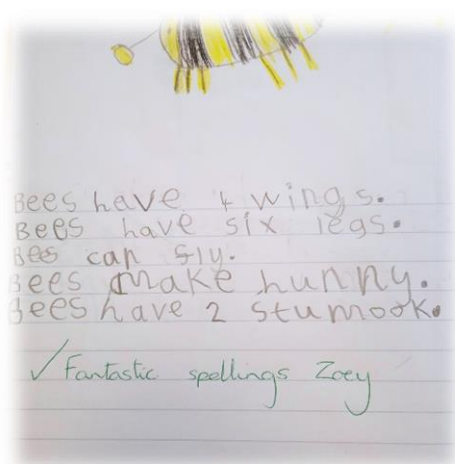 Bees have 4 wings.
Bees have six legs.
Bees can fly.
Bees make hunny.
Bees have 2 stumook.
✓ Fantastic spellings Zoey